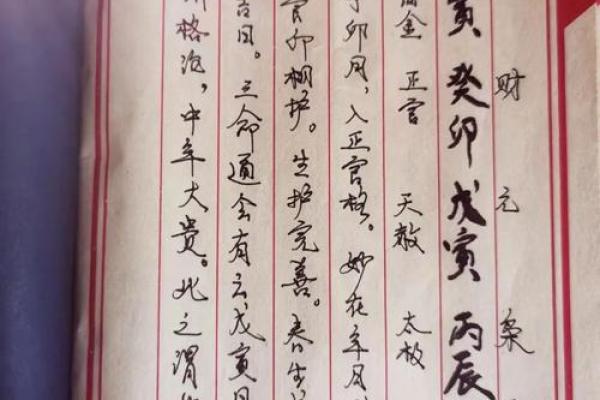 财 元 枭
寅 癸卯 戊寅 丙辰
金 正官 天赦 太极
卯月，入正官格。妙在年月
官卯相护。生护完善。春生
吉日。三命通会有云，戊寅日
格治，中年大贵。此之谓